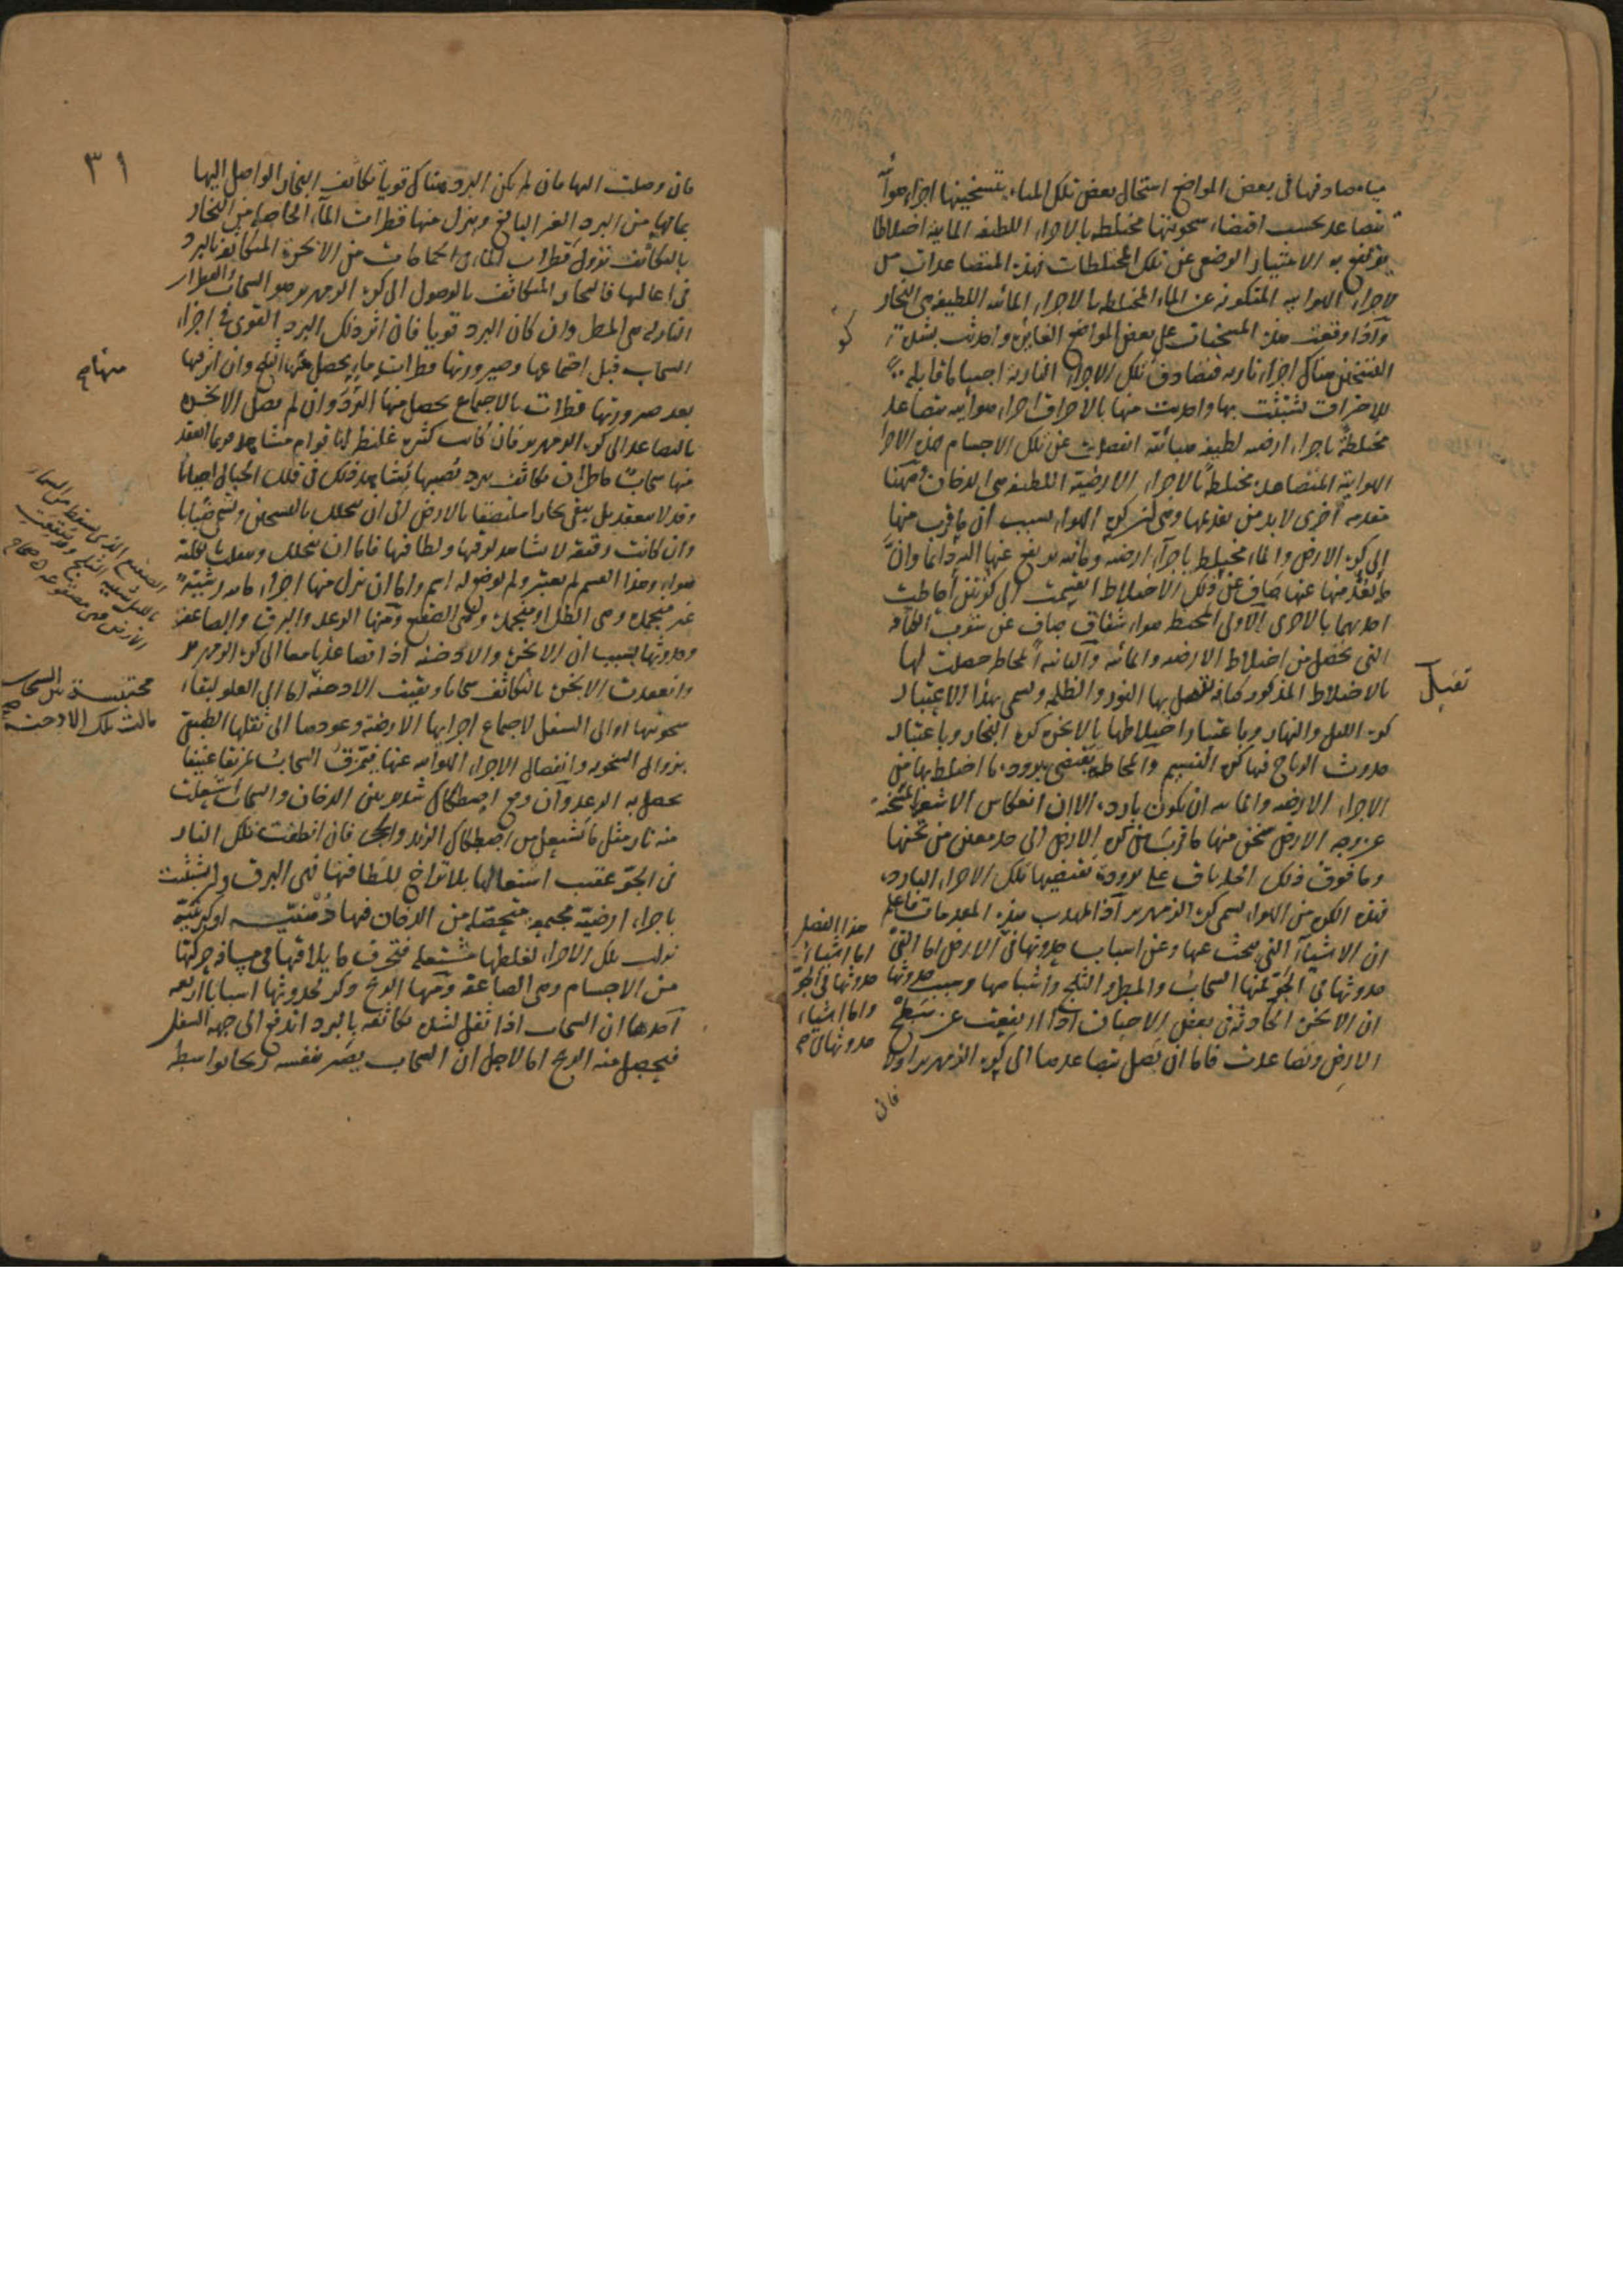 مياه صادفها فى بعض المواضع استحال بعض تلك المياه بتسخينها اجزاء هوائية
تتصاعد بحسب اقتضاء سخونتها مختلطة بالاجزاء اللطيفة المائية اختلاطا
يرتفع به الامتياز الوضعى عن تلك المختلطات فهذه المتصاعدات من
الاجزاء الهوائية المتكونة عن الماء المختلطة بالاجزاء المائية اللطيفة هى البخار
واذا وقعت هذه المسخنات على بعض المواضع واحدثت بشدة
التسخين هناك اجزاء نارية فتصادف تلك الاجزاء النارية اجساما قابلة
للاحتراق تشبثت بها واحدثت منها بالاحراق اجزاء هوائية متصاعدة
مختلطة باجزاء ارضية لطيفة انفصلت عن تلك الاجسام هذه الاجزاء
الهوائية المتصاعدة مختلطة بالاجزاء الارضية اللطيفة هى الدخان وههنا
مقدمة اخرى لابد من تقديمها وهى ان كرة الهواء بسبب ان ما قرب منها
الى كرة الارض والماء مختلط باجزاء ارضية ومائية ترتفع عنها اليه دائما وان
ما بعد منها عنها صاف عن ذلك الاختلاط انقسمت الى كرتين احاطت
احديهما بالاخرى الاولى المحيطة هواء شفاف صاف عن شوب
التى تحصل من اختلاط الارضية والمائية والثانية المحاطة حصلت لها
بالاختلاط المذكور كثافة تقبل بها النور والظلمة وتسمى بهذا الاعتبار
كرة الليل والنهار وباعتبار اختلاطها بالابخرة كرة البخار وباعتبار
حدوث الرياح فيها كرة النسيم والمحاطة يقتضى برودة ما اختلط بها من
الاجزاء الارضية والمائية ان تكون باردة الا ان انعكاس الاشعة المسخنة
عن وجه الارض سخن منها ما قرب من كرة الارض الى حد معين من ثخنها
وما فوق ذلك الحد باق على برودة تقتضيها تلك الاجزاء الباردة
فهذه الكرة من الهواء تسمى كرة الزمهرير اذا تمهدت هذه المقدمات فاعلم
ان الاشياء التى يبحث عنها وعن اسباب حدوثها فى هذا الفصل اما اشياء حدوثها فى الجو واما اشياء حدوثها فى الارض اما التى
حدوثها فى الجو فمنها السحاب والمطر والثلج واشباهها وسبب حدوثها
ان الابخرة الحادثة فى بعض الاحيان اذا ارتفعت عن سطح
الارض وتصاعدت فاما ان تصل بتصاعدها الى كرة الزمهرير اولا
فان
تقبل
٣١
فان وصلت اليها فان لم يكن البرد هناك قويا تكاثف البخار الواصل اليها
بما لها من البرد الغير البالغ وينزل منها قطرات الماء الحاصلة من البخار
بالتكاثف نزول قطرات الماء فى الحمامات من الابخرة المتكاثفة بالبرد
فى اعاليها فالبخار المتكاثف بالوصول الى كرة الزمهرير هو السحاب والقطرات
النازلة هى المطر وان كان البرد قويا فان اثر ذلك البرد القوى فى اجزاء
السحاب قبل اجتماعها وصيرورتها قطرات ماء يحصل منها الثلج وان اثر فيها
بعد صيرورتها قطرات بالاجتماع يحصل منها البرد وان لم تصل الابخرة
بالتصاعد الى كرة الزمهرير فان كانت كثيرة غليظ لها قوام مشاهد فربما انعقد
منها سحاب ماطر ان تكاثف ببرد يصيبها يشاهد ذلك فى قلل الجبال احيانا
وقد لا ينعقد بل يبقى بخارا ملتصقا بالارض الى ان يتحلل بالتسخين ويسمى ضبابا
وان كانت رقيقة لا تشاهد لرقتها ولطافتها فاما ان تتحلل وتنقلب بكليته
هواء وهذا القسم لم يعتبر ولم يوضع له اسم واما ان نزل منها اجزاء مائية رشيشة
غير منجمدة وهى الطل او منجمدة وهى الصقيع ومنها الرعد والبرق والصاعقة
وحدوثها بسبب ان الابخرة والادخنة اذا تصاعدتا معا الى كرة الزمهرير
وانعقدت الابخرة بالتكاثف سحابا وبقيت الادخنة محتبسة بين السحاب مالت تلك الادخنة اما الى العلو لبقاء
سخونتها او الى السفل لاجتماع اجزائها الارضية وعودها الى ثقلها الطبيعى
بزوال السخونة وانفصال الاجزاء الهوائية عنها فتمزق السحاب تمزيقا عنيفا
يحصل به الرعد وان وقع اصطكاك شديد بين الدخان والسحاب اشتعلت
منه نار مثل ما تشتعل من اصطكاك الزند والحجر فان انطفت تلك النار
فى الجو عقيب اشتعالها بلا تراخ للطافتها فهى البرق وان تشبثت
باجزاء ارضية مجتمعة متحصلة من الدخان فيها دهنية او كبريتية
نزلت تلك الاجزاء لغلظها مشتعلة فتحرق ما يلاقيها فى مسافة حركتها
من الاجسام وهى الصاعقة ومنها الريح وذكر لحدوثها اسبابا اربعة
احدها ان السحاب اذا ثقل لشدة تكاثفه بالبرد اندفع الى جهة السفل
فيحصل منه الريح اما لاجل ان السحاب يصير بنفسه ريحا بواسطة
الصقيع الذى يسقط من السماء
بالليل شبيه الثلج وقد صقعت
الارض فهى مصقوعة صحاح